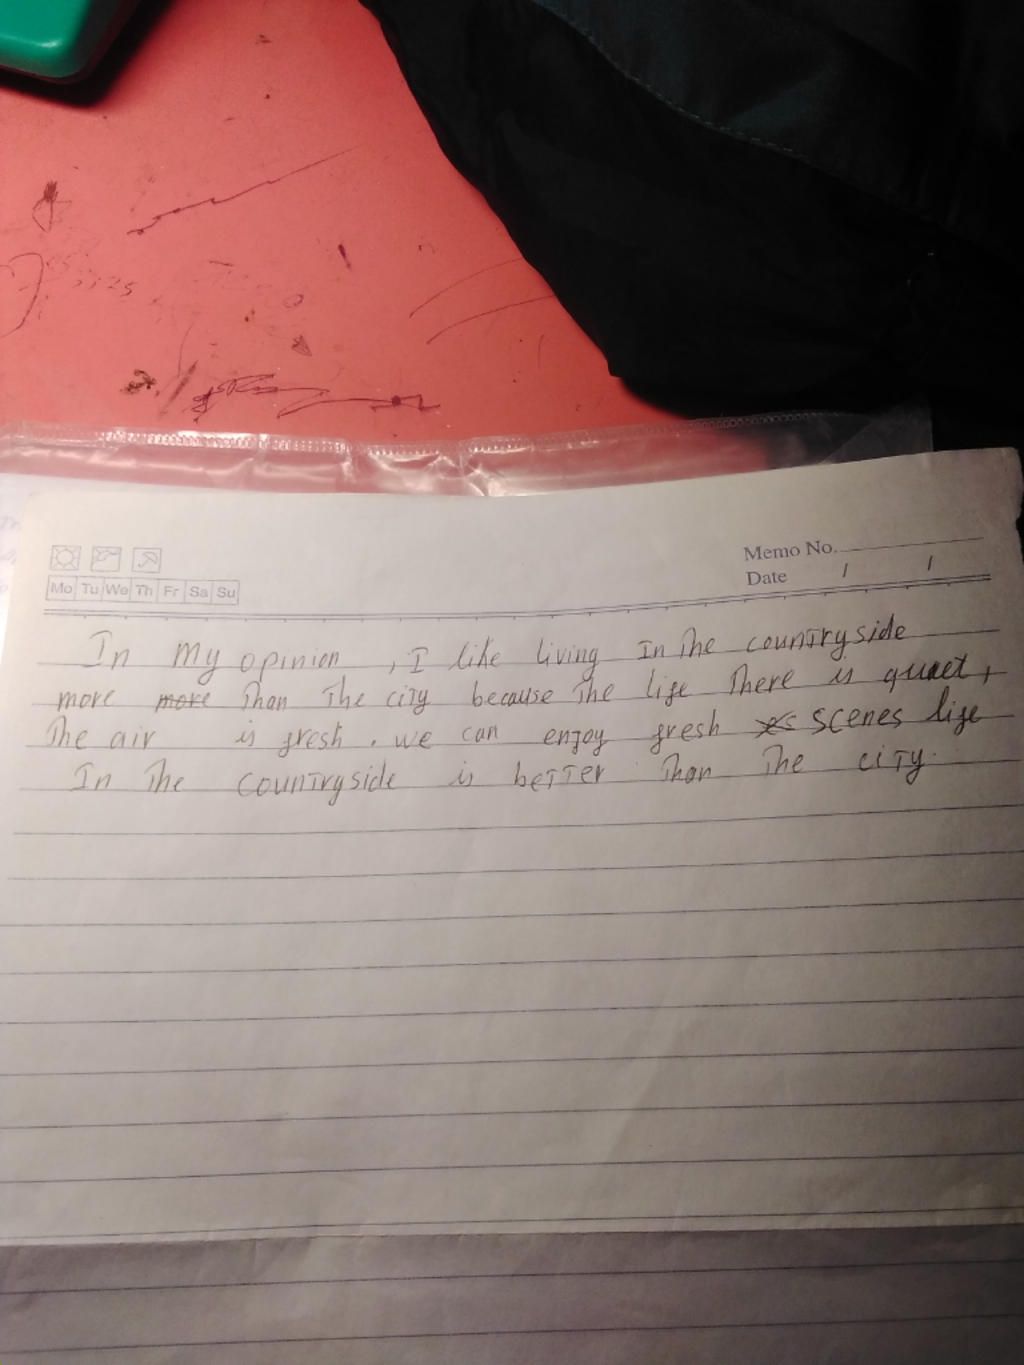 Memo No.
Mo Tu We Th Fr Sa Su
Date / /
In my opinion , I like living In the countryside
more more than the city because the life there is quaet,
The air is fresh . we can enjoy fresh scenes life
In the countryside is better than the city.